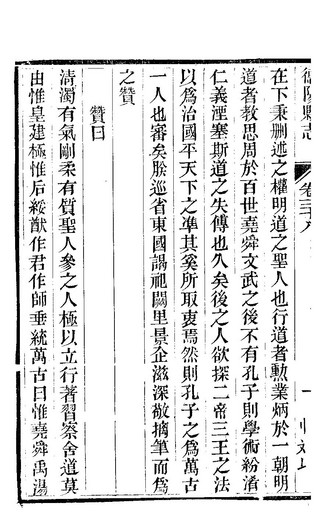 德陽縣志 卷三十八
在下秉刪述之權明道之聖人也行道者勳業炳於一朝明
道者教思周於百世堯舜文武之後不有孔子則學術紛淆
仁義湮塞斯道之失傳也久矣後之人欲探二帝三王之法
以爲治國平天下之準其奚所取衷焉然則孔子之爲萬古
一人也審矣朕巡省東國謁祀闕里景企滋深敬摛筆而爲
之贊
贊曰
清濁有氣剛柔有質聖人參之人極以立行著習察舍道莫
由惟皇建極惟后綏猷作君作師垂統萬古曰惟堯舜禹湯